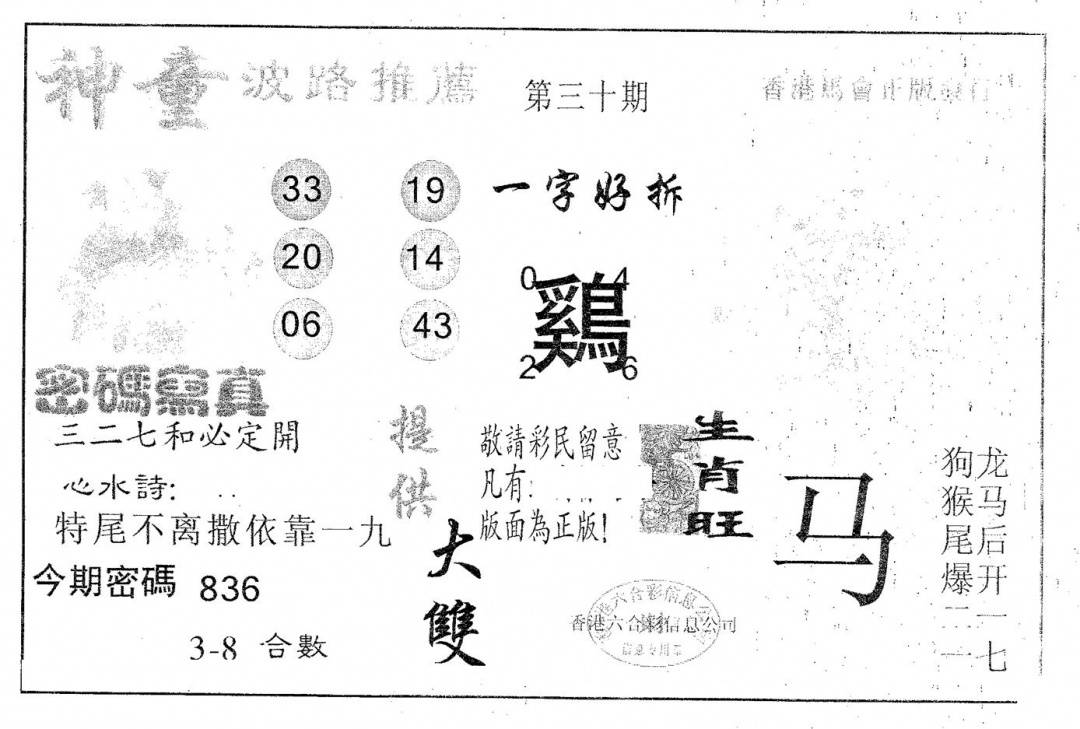 神童 波路推薦
第三十期
香港馬會正版發行
33 19
20 14
06 43
一字好拆
0 4
鷄
2 6
密碼寫真
三二七和必定開
心水詩:
特尾不离撒依靠一九
今期密碼 836
3-8 合數
提供
大雙
敬請彩民留意
凡有:
版面為正版!
生肖旺
马
龙马后开一七
狗猴尾爆二一
香港六合彩信息公司